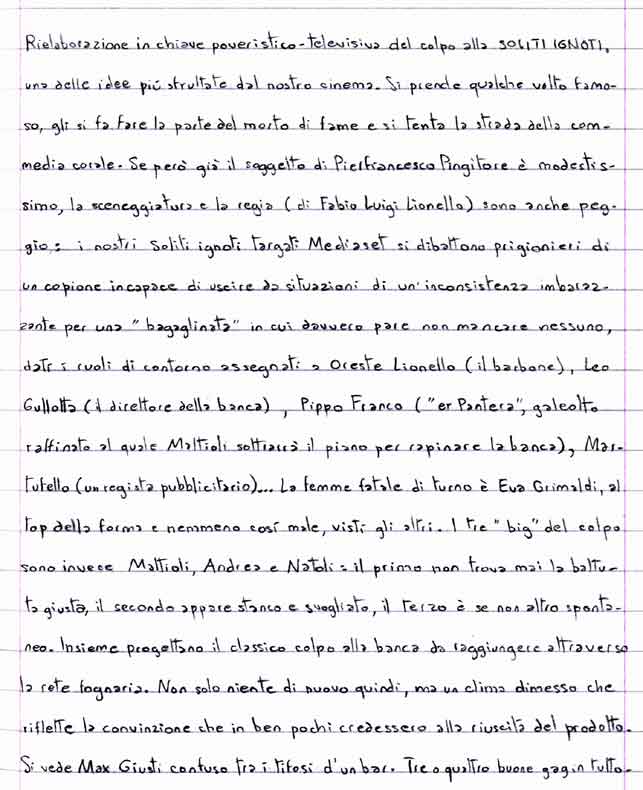 Rielaborazione in chiave poveristico-televisiva del colpo alla SOLITI IGNOTI,
una delle idee più sfruttate dal nostro cinema. Si prende qualche volto famo-
so, gli si fa fare la parte del morto di fame e si tenta la strada della com-
media corale. Se però già il soggetto di Pierfrancesco Pingitore è modestis-
simo, la sceneggiatura e la regia (di Fabio Luigi Lionello) sono anche peg-
gio: i nostri soliti ignoti targati Mediaset si dibattono prigionieri di
un copione incapace di uscire da situazioni di un'inconsistenza imbaraz-
zante per una "bagaglinata" in cui davvero pare non mancare nessuno,
dati i ruoli di contorno assegnati a Oreste Lionello (il barbone), Leo
Gullotta (il direttore della banca), Pippo Franco ("er Pantera", galeotto
raffinato al quale Mattioli sottrarrà il piano per rapinare la banca), Mar-
tufello (un regista pubblicitario)... La femme fatale di turno è Eva Grimaldi, al
top della forma e nemmeno così male, visti gli altri. I tre "big" del colpo
sono invece Mattioli, Andrea e Natoli: il primo non trova mai la battu-
ta giusta, il secondo appare stanco e svogliato, il terzo è se non altro sponta-
neo. Insieme progettano il classico colpo alla banca da raggiungere attraverso
la rete fognaria. Non solo niente di nuovo quindi, ma un clima dimesso che
riflette la convinzione che in ben pochi credessero alla riuscita del prodotto.
Si vede Max Giusti confuso tra i tifosi d'un bar. Tre o quattro buone gag in tutto.